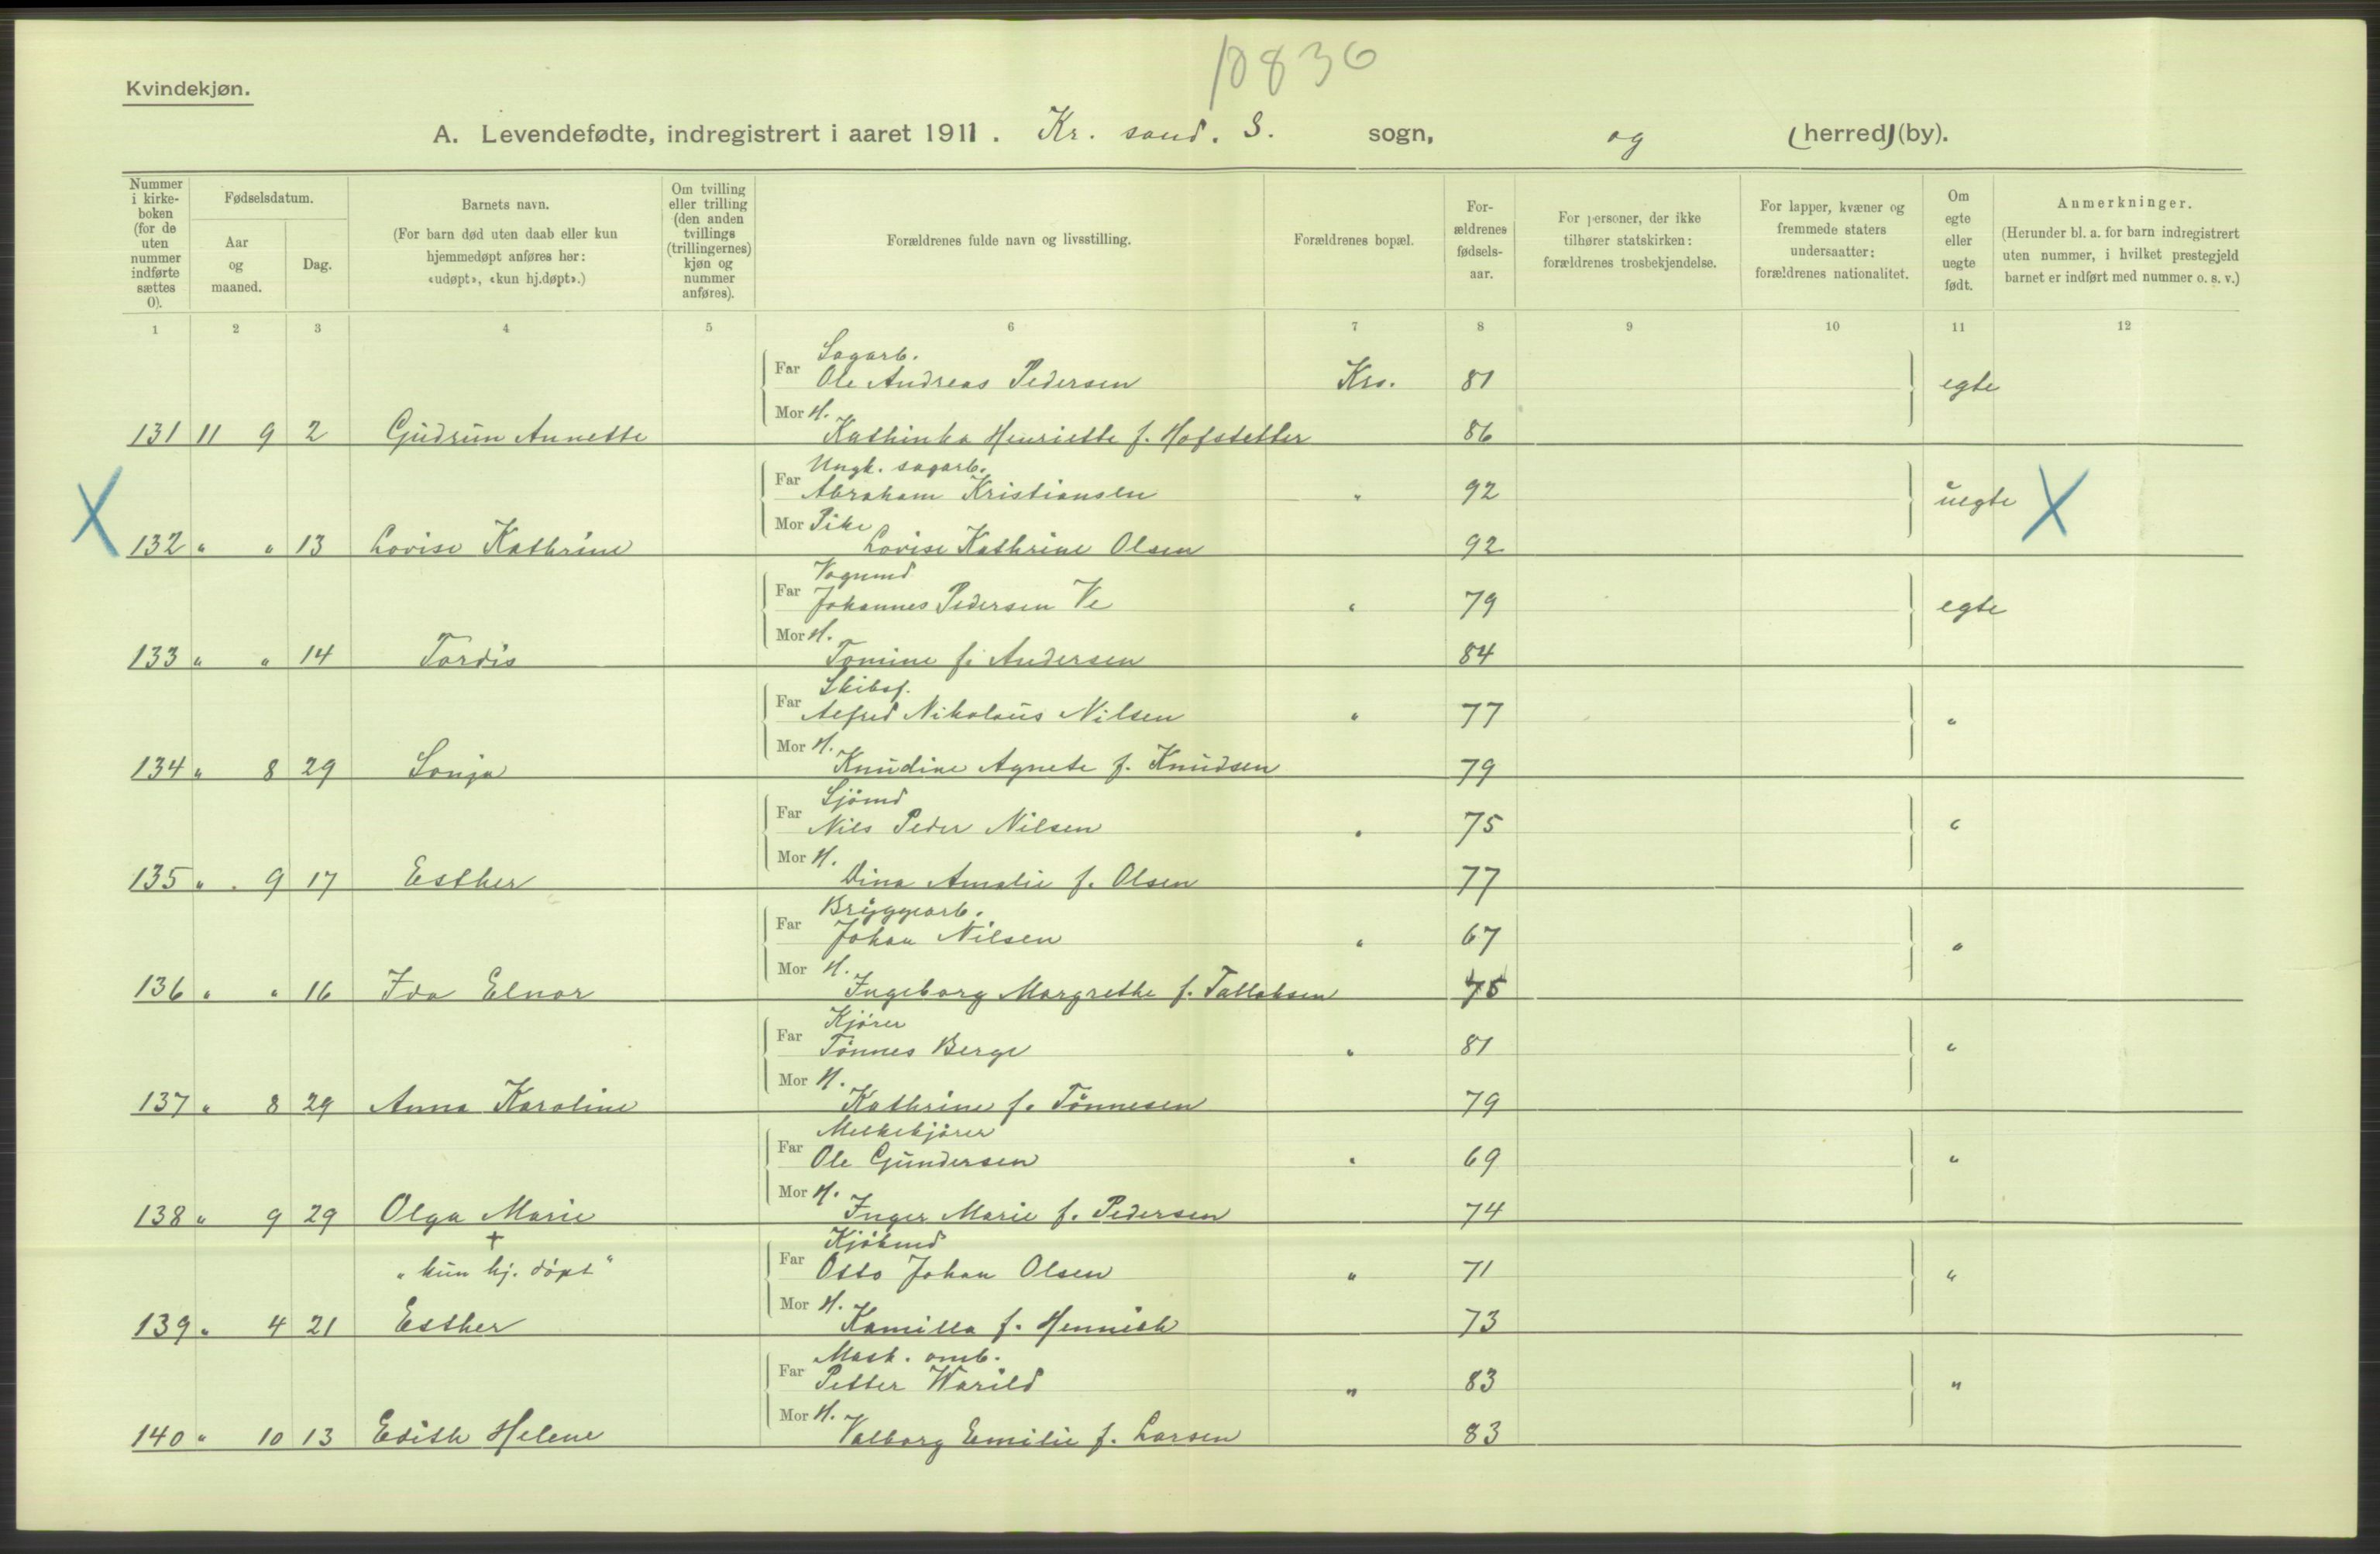 10836
Kvindekjøn.
A. Levendefødte, indregistrert i aaret 1911. Kr. sand. S. sogn, og (herred) (by).
Nummer i kirkeboken (for de uten nummer indførte sættes 0).
Fødselsdatum.
Aar og maaned.
Dag.
Barnets navn.
(For barn død uten daab eller kun hjemmedøpt anføres her: «udøpt», «kun hj.døpt».)
Om tvilling eller trilling (den anden tvillings (trillingernes) kjøn og nummer anføres).
Forældrenes fulde navn og livsstilling.
Forældrenes bopæl.
Forældrenes fødselsaar.
For personer, der ikke tilhører statskirken: forældrenes trosbekjendelse.
For lapper, kvæner og fremmede staters undersaatter: forældrenes nationalitet.
Om egte eller uegte født.
Anmerkninger.
(Herunder bl. a. for barn indregistrert uten nummer, i hvilket prestegjeld barnet er indført med nummer o. s. v.)
1 2 3 4 5 6 7 8 9 10 11 12
Sagarb.
Far Ole Andreas Pedersen Krs. 81 egte
Mor H.
131 11 9 2 Gudrun Annette Kathinka Henriette f. Hofstetter 86
Ungk. sagarb.
Far Abraham Kristiansen " 92 uegte X
Mor Pike
X 132 " " 13 Lovise Kathrine Lovise Kathrine Olsen 92
Vognmd
Far Johannes Pedersen Ve " 79 egte
Mor H.
133 " " 14 Tordis Tomine f. Andersen 84
Skibsf.
Far Alfred Nikolaus Nilsen " 77 "
Mor H.
134 " 8 29 Sonja Knudine Agnete f. Knudsen 79
Sjömd
Far Nils Peder Nilsen " 75 "
Mor H.
135 " 9 17 Esther Dina Amalie f. Olsen 77
Bryggearb.
Far Johan Nilsen " 67 "
Mor H.
136 " " 16 Ida Elnor Ingeborg Margrethe f. Tallaksen 75
Kjörer
Far Tönnes Berge " 81 "
Mor H.
137 " 8 29 Anna Karoline Kathrine f. Tönnesen 79
Melkekjörer
Far Ole Gundersen " 69 "
Mor H.
138 " 9 29 Olga Marie Inger Marie f. Pedersen 74
+ Kjöbmd
"kun hj. döpt" Far Otto Johan Olsen " 71 "
Mor H.
139 " 4 21 Esther Kamilla f. Hennich 73
Mask. arb.
Far Petter Warild " 83 "
Mor H.
140 " 10 13 Edith Helene Valborg Emilie f. Larsen 83